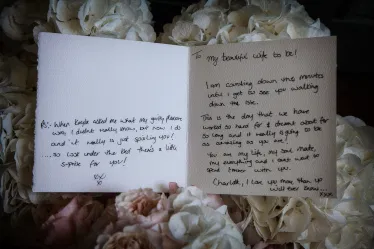 Ps:- When people asked me what my guilty pleasure
was, I didn't really know, but now I do
and it really is just spoiling you!
... so look under the bed there's a little
surprise for you!
xx
x
To my beautiful wife to be!
I am counting down the minutes
until I get to see you walking
down the isle.
This is the day that we have
waited so hard for & dreamt about for
so long and it really is going to be
as amazing as you are!
You are my life, my soul mate,
my everything and I can't wait to
spend forever with you.
Charlotte, I love you more than you
will ever know.
xxx